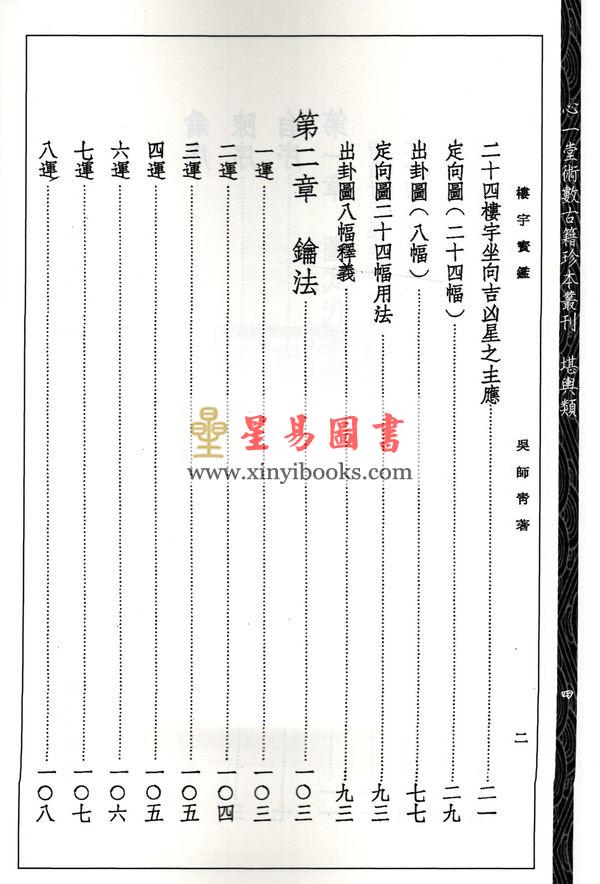 心一堂術數古籍珍本叢刊 堪輿類
四
樓宇寶鑑 吳師青著 二
二十四樓宇坐向吉凶星之主應 二一
定向圖(二十四幅) 二九
出卦圖(八幅) 七七
定向圖二十四幅用法 九三
出卦圖八幅釋義 九三
第二章 鑰法 一〇三
一運 一〇三
二運 一〇四
三運 一〇五
四運 一〇五
六運 一〇六
七運 一〇七
八運 一〇八
星易圖書
www.xinyibooks.com